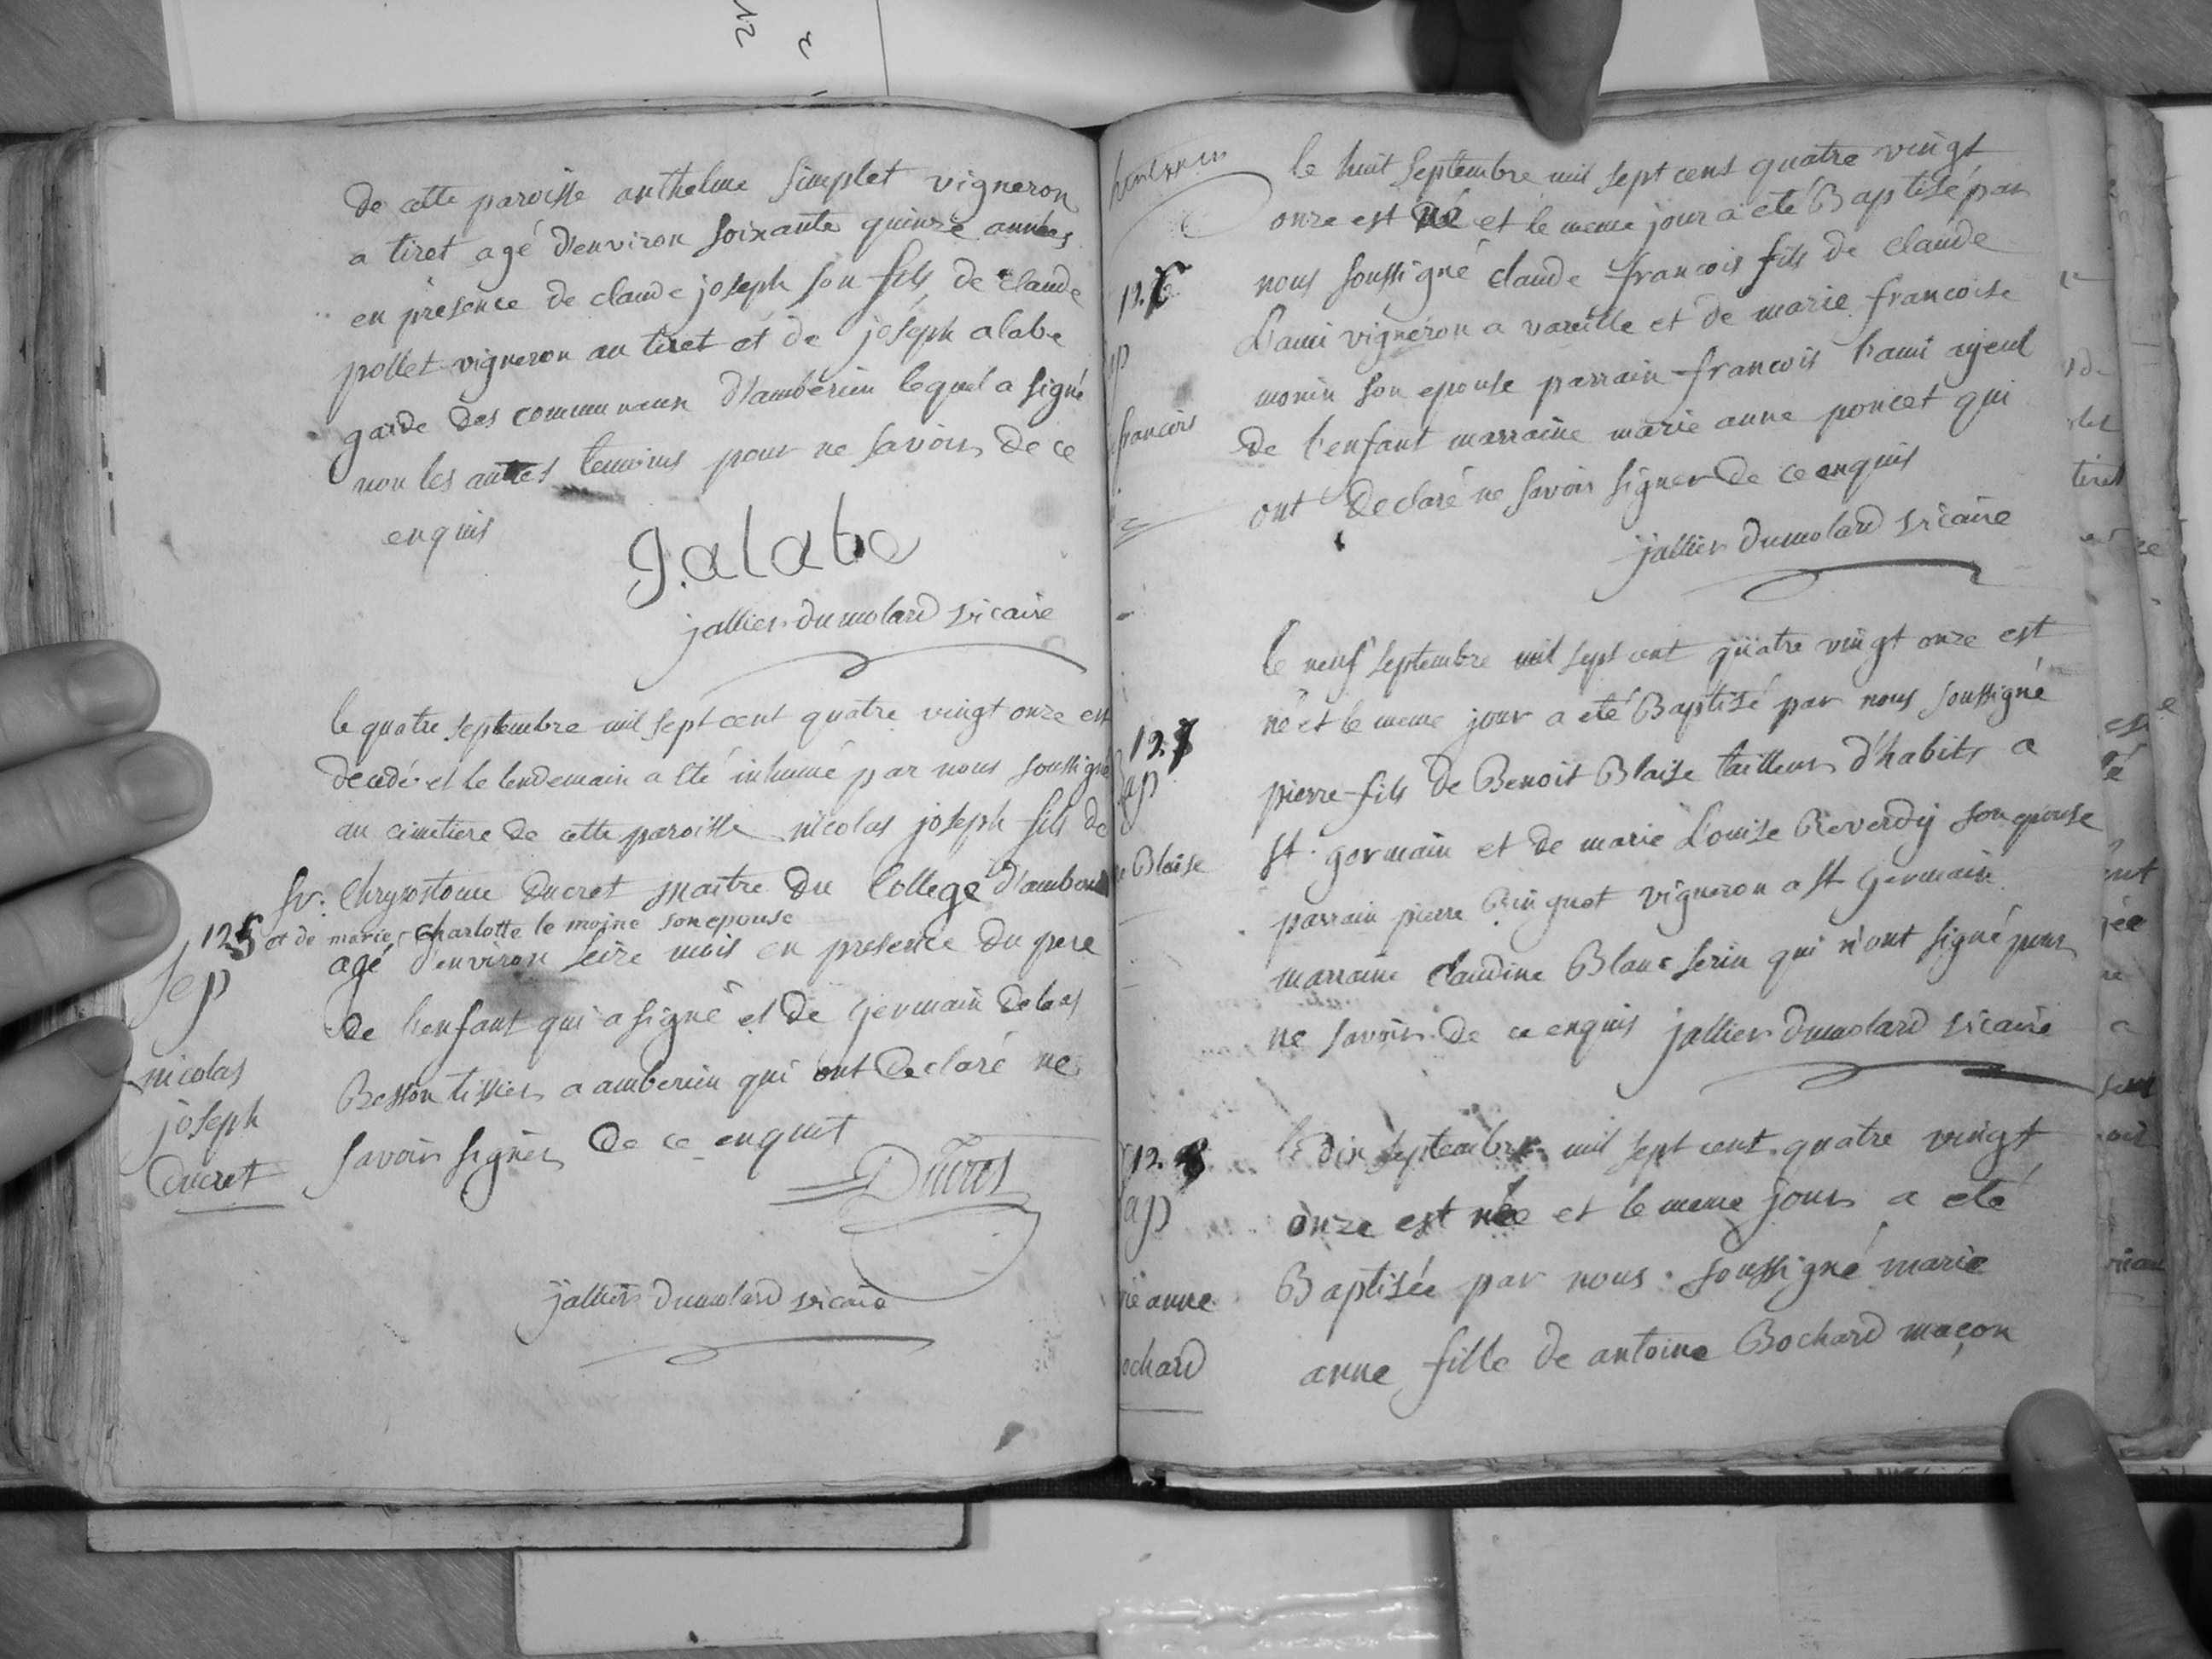 de cette paroisse anthelme simplet vigneron
a tiret agé d'environ soixante quinze années
en présence de claude joseph son fils, de claude
pollet vigneron au tiret et de joséph alabe
garde des communaux d'ambérieu lequel a signé
non les autres temoins pour ne savoir de ce
enquis
J. alabe
jallier dumolard vicaire
le quatre septembre mil sept cent quatre vingt onze est
decedé et le lendemain a été inhumé par nous soussigné
au cimetiere de cette paroisse nicolas joseph fils de
sr. Chrysostome Ducret maitre du College
125 et de marie Charlotte le moine son epouse
sep agé d'environ seize mois en presence du pere
de l'enfant qui a signé et de Germain
nicolas Besson tissier a amberieu qui ont declaré ne
joseph savoir signer de ce enquit
Ducret
Ducret
jallier dumolard vicaire
le huit septembre mil sept cens quatre vingt
onze est né et le meme jour a eté Baptisé par
126 nous soussigné claude francois fils de claude
L'ami vigneron a vareille et de marie francoise
monin son epouse parrain francois l'ami ayeul
francois de l'enfant marraine marie anne poncet qui
ont declaré ne savoir signer de ce enquis
jallier dumolard vicaire
le neuf septembre mil sept cent quatre vingt onze est
né et le meme jour a eté Baptisé par nous soussigné
127 pierre fils de Benoit Blaise tailleur d'habits a
ap st. germain et de marie Louise Reverdy son epouse
Blaise parrain pierre vigneron a st Germain
marraine claudine Blanc serin qui n'ont signé pour
ne savoir de ce enquis jallier dumolard vicaire
128 le dix septembre mil sept cent quatre vingt
ap onze est née et le meme jour a eté
anne Baptisée par nous soussigné marie
ochard anne fille de antoine Bochard maçon